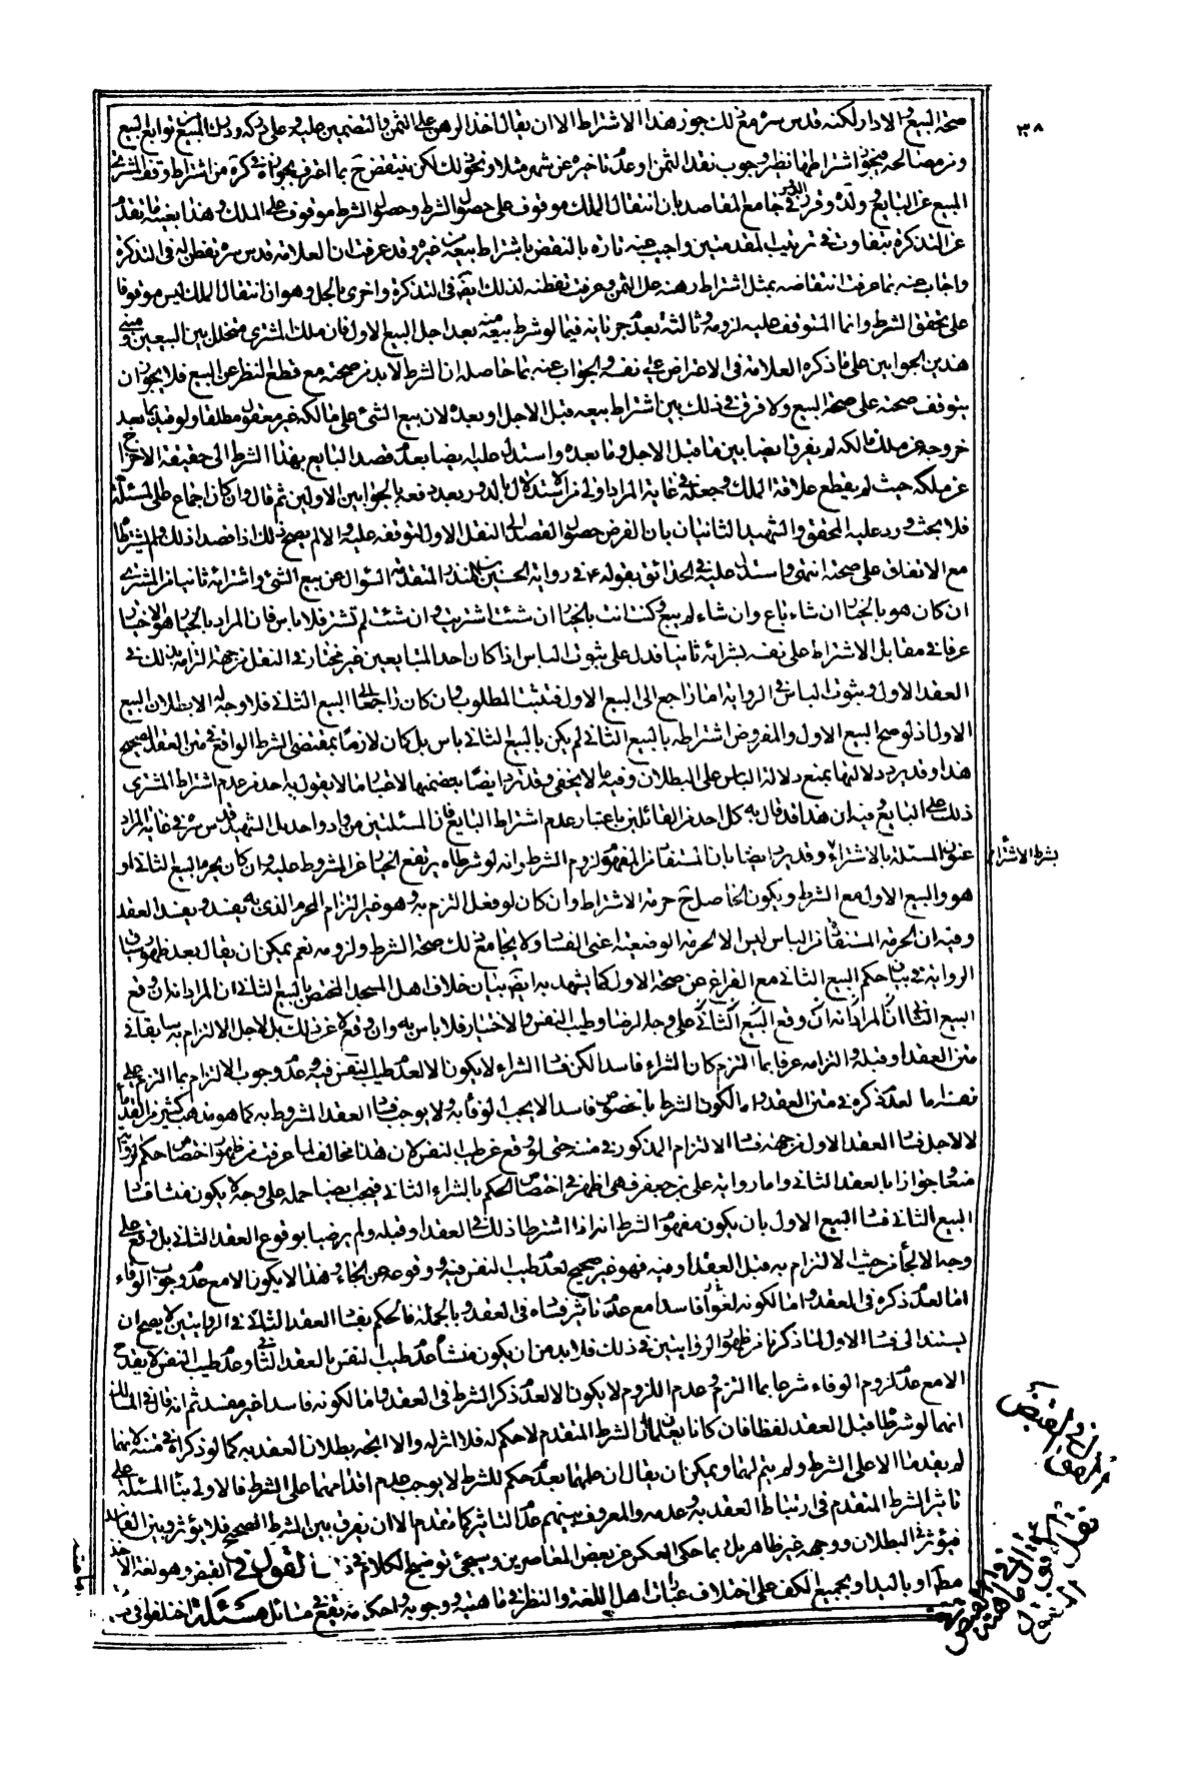 ٣٨
صحة البيع الا دار لكنه قدس سره مع ذلك جوز هذا الاشتراط الا ان يقال اخذ الرهن على الثمن والتضمين عليه وعلى دركه ودرك المبيع من توابع البيع
ومن مصالحه فيجوز اشتراطها نظير وجوب نقد الثمن او عدم تاخيره عن شهر مثلا ونحو ذلك لكن ينتقض ح بما اعترف بجوازه في كرة من اشتراط وقف المشتري
المبيع على البايع وولده وقرر الدور في جامع المقاصد بان انتقال الملك موقوف على حصول الشرط وحصول الشرط موقوف على الملك وهذا بعينه ما تقدم
عن التذكرة بتفاوت في ترتيب المقدمتين واجيب عنه تارة بالنقض باشتراط بيعه من غيره وقد عرفت ان العلامة قدس سره تفطن له في التذكرة
واجاب عنه بما عرفت انتقاضه بمثل اشتراط رهنه على الثمن وعرفت تفطنه لذلك ايضا في التذكرة واخرى بالحل وهو ان انتقال الملك ليس موقوفا
على تحقق الشرط وانما المتوقف عليه لزومه وثالثة بعدم جريانه فيما لو شرط بيعه منه بعد اجل البيع الاول فان ملك المشتري متخلل بين البيعين ومبنى
هذين الجوابين على ما ذكره العلامة في الاعتراض على نفسه والجواب عنه بما حاصله ان الشرط لا بد من صحته مع قطع النظر عن البيع فلا يجوز ان
يتوقف صحته على صحة البيع ولا فرق في ذلك بين اشتراط بيعه قبل الاجل او بعده لان بيع الشئ على مالكه غير معقول مطلقا ولو قيد بما بعد
خروجه عن ملك مالكه لم يفرق ايضا بين ما قبل الاجل وما بعده واستدل عليه ايضا بعدم قصد البايع بهذا الشرط الى حقيقة الاخراج
عن ملكه حيث لم يقطع علاقة الملك وجعله في غاية المراد اولى من الاستدلال بالدور بعد دفعه بالجوابين الاولين ثم قال وان كان اجماع على المسئلة
فلا بحث ورد عليه المحقق والشهيد الثانيان بان الفرض حصول القصد الى النقل الاول لتوقفه عليه والا لم يصح ذلك اذا قصدا ذلك ولم يشترطاه
مع الاتفاق على صحته انتهى واستدل عليه في الحدائق بقوله ع في رواية الحسين بن المنذر المتقدمة السؤال عن بيع الشئ واشترائه ثانيا من المشتري
ان كان هو بالخيار ان شاء باع وان شاء لم يبع وكنت انت بالخيار ان شئت اشتريت وان شئت لم تشتر فلا باس فان المراد بالخيار هو الاختيار
عرفا في مقابل الاشتراط على نفسه بشرائه ثانيا فدل على ثبوت الباس اذا كان احد المتبايعين غير مختار في النقل من جهة التزامه بذلك في
العقد الاول وثبوت الباس في الرواية اما راجع الى البيع الاول فثبت المطلوب وان كان راجعا الى البيع الثاني فلا وجه له الا بطلان البيع
الاول اذ لو صح البيع الاول والمفروض اشتراطه بالبيع الثاني لم يكن بالبيع الثاني باس بل كان لازما بمقتضى الشرط الواقع في متن العقد الصحيح
هذا وقد يرد دلالتها بمنع دلالة الباس على البطلان وفيه ما لا يخفى وقد يرد ايضا بتضمنها لاعتبار ما لا يقول به احد من عدم اشتراط المشتري
ذلك على البايع وفيه ان هذا قد قال به كل احد من القائلين باعتبار عدم اشتراط البايع فان المسئلتين من واد واحد بل الشهيد قدس سره في غاية المراد
عنون المسئلة بالاشتراء وقد يرد ايضا بان المستفاد من المفهوم لزوم الشرط وانه لو شرطاه يرتفع الخيار عن المشروط عليه وان كان يحرم البيع الثاني او
بشرط الاشتراء
هو والبيع الاول مع الشرط ويكون الحاصل ح حرمة الاشتراط وان كان لو فعل التزم به وهو غير التزام المحرم الذي به يفسد ويفسد العقد
وفيه ان الحرمة المستفادة من الباس ليس الا الحرمة الوضعية اعنى الفساد ولا يجامع ذلك صحة الشرط ولزومه نعم يمكن ان يقال بعد ظهور سياق
الرواية في بيان حكم البيع الثاني مع الفراغ عن صحة الاول كما يشهد به ايضا بيان خلاف اهل المسجد المختص بالبيع الثاني ان المراد انه ان وقع
البيع الثاني ان المراد انه ان وقع البيع الثاني على وجه الرضا وطيب النفس والاختيار فلا باس به وان وقع لا عن ذلك بل لاجل الالتزام به سابقا في
متن العقد او قبله والتزامه عرفا بما التزم كان الشراء فاسدا لكن فساد الشراء لا يكون الا لعدم طيب النفس فيه وعدم وجوب الالتزام بما التزم على
نفسه اما لعدم ذكره في متن العقد واما لكون الشرط بالخصوص فاسدا لا يجب الوفاء به ولا يوجب فساد العقد المشروط به كما هو مذهب كثير من القدماء
لا لاجل فساد العقد الاول من جهة فساد الالتزام المذكور في متنه حتى لو وقع عن طيب النفس لان هذا مخالف لما عرفت من ظهور اختصاص حكم الرواية
منعا وجوازا بالعقد الثاني واما رواية علي بن جعفر فهى اظهر في اختصاص الحكم بالشراء الثاني فيجب ايضا حمله على وجه لا يكون منشا فساد
البيع الثاني فساد البيع الاول بان يكون مفهوم الشرط انه اذا اشترطا ذلك في العقد او قبله ولم يرضيا بوقوع العقد الثاني بل وقع على
وجه الالجأ من حيث الالتزام به قبل العقد او فيه فهو غير صحيح لعدم طيب النفس فيه ووقوعه عن الجاء وهذا لا يكون الا مع عدم وجوب الوفاء
اما لعدم ذكره في العقد واما لكونه لغوا فاسدا مع عدم تاثير فساده في العقد وبالجملة فالحكم بفساد العقد الثاني في الروايتين لا يصح ان
يستند الى فساد الاول لما ذكرنا من ظهور الروايتين في ذلك فلا بد من ان يكون منشأ عدم طيب النفس بالعقد الثاني وعدم طيب النفس لا يقدح
الا مع عدم لزوم الوفاء شرعا بما التزم وعدم اللزوم لا يكون الا لعدم ذكر الشرط في العقد واما لكونه فاسدا غير مفسد ثم انه قال في المسالك
انهما لو شرطاه قبل العقد لفظا فان كانا يعلمان بان الشرط المتقدم لا حكم له فلا اثر له والا اتجه بطلان العقد به كما لو ذكراه في متنه لانهما
لم يقدما الا على الشرط ولم يتم لهما ويمكن ان يقال ان علمهما بعدم حكم للشرط لا يوجب عدم اقدامهما على الشرط فالاولى بناء المسئلة على
تاثير الشرط المتقدم في ارتباط العقد به وعدمه والمعروف بينهم عدم التاثير كما تقدم الا ان يفرق بين الشرط الصحيح فلا يؤثر وبين الفاسد
فيؤثر في البطلان ووجهه غير ظاهر بل ربما حكى العكس عن بعض المعاصرين وسيجئ توضيح الكلام في ذلك القول في القبض وهو لغة الاخذ
مطلقا او باليد او بجميع الكف على اختلاف عبارات اهل اللغة والنظر في ماهيته ووجوبه واحكامه يقع في مسائل مسئلة اختلفوا في
القول في القبض